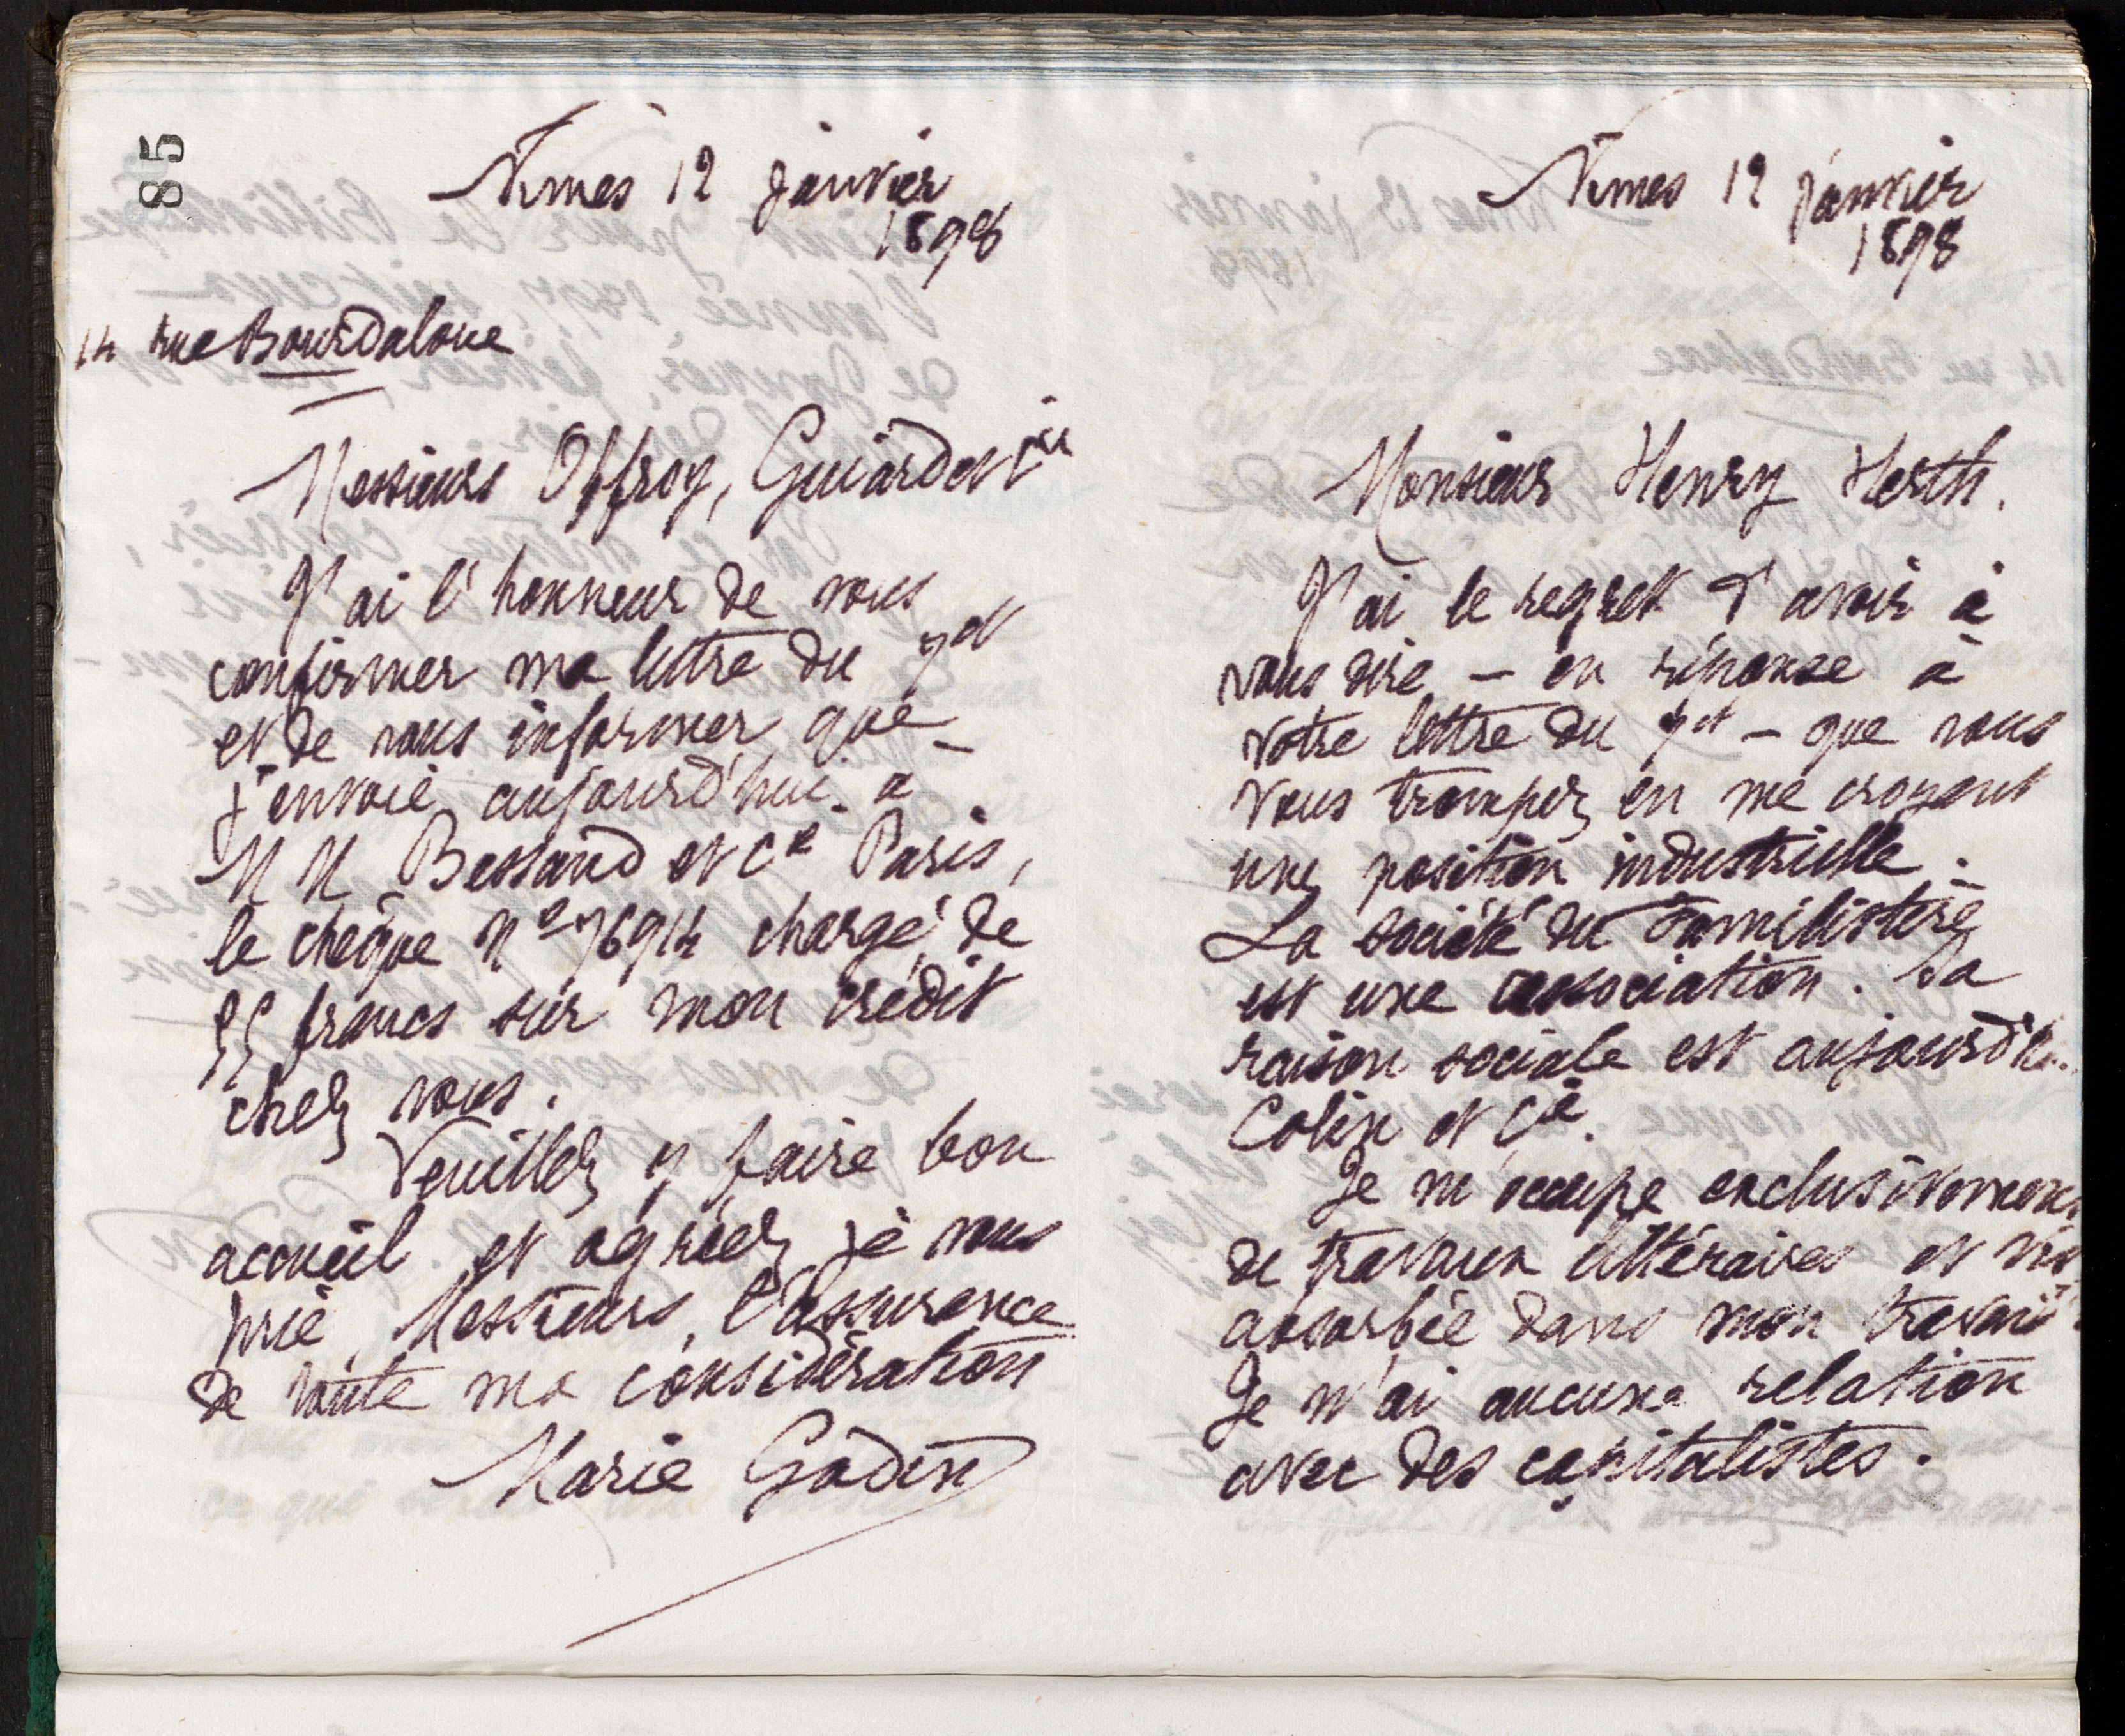 85
Nimes 12 janvier
1898
14 rue Bourdaloue
Messieurs Offroy, Guiard et Cie
J'ai l'honneur de vous
confirmer ma lettre du 7 ct
et de vous informer que
j'envoie aujourd'hui à
MM Bessand et Cie Paris,
le chèque No 76914 chargé de
55 francs sur mon crédit
chez vous.
Veuillez y faire bon
accueil et agréez, je vous
prie, Messieurs, l'assurance
de toute ma considération
Marie Godin
Nimes 12 janvier
1898
Monsieur Henry Herth.
J'ai le regret d'avoir à
vous dire – en réponse à
votre lettre du 7 ct – que vous
vous trompez en me croyant
une position industrielle.
La société du Familistère
est une association. Sa
raison sociale est aujourd'hu
Colin et Cie.
Je m'occupe exclusivement
de travaux littéraires et vis
absorbée dans mon travail.
Je n'ai aucune relation
avec des capitalistes.